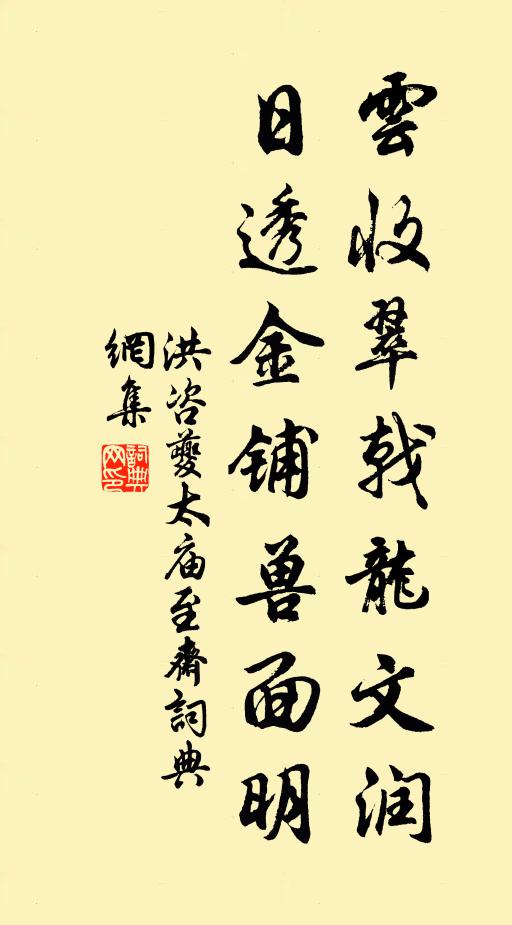 雲收翠戟龍文润
日透金铺兽面明
洪咨夔太庙至齋詞典
網集
詞典
网印